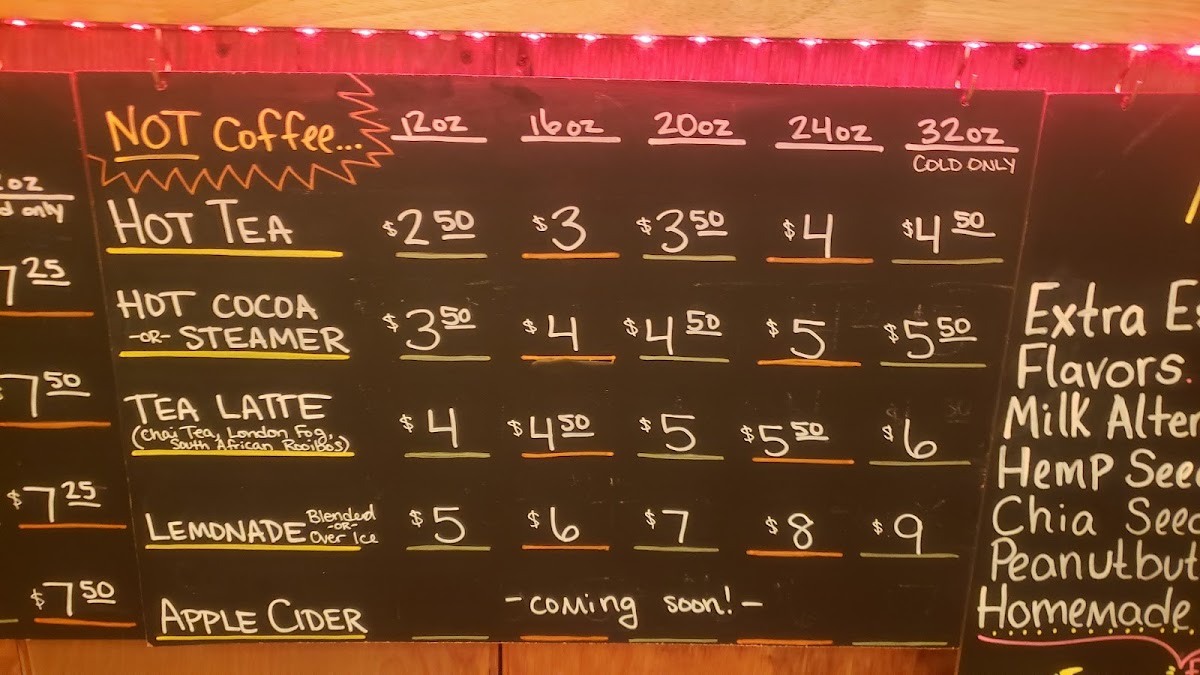 NOT Coffee... 12oz 16oz 20oz 24oz 32oz
COLD ONLY
HOT TEA $2 50 $3 $3 50 $4 $4 50
HOT COCOA
-OR- STEAMER $3 50 $4 $4 50 $5 $5 50
TEA LATTE
(Chai Tea, London Fog,
South African Rooibos) $4 $4 50 $5 $5 50 $6
LEMONADE Blended
-OR-
Over Ice $5 $6 $7 $8 $9
APPLE CIDER -coming soon!-
oz
only
7 25
7 50
$7 25
$7 50
Extra
Flavors
Milk
Hemp
Chia
Homemade